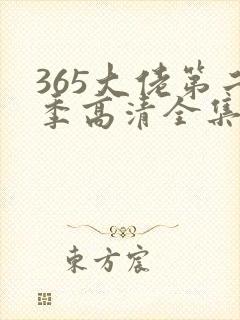 365大佬第二
季高清全集
东方宸